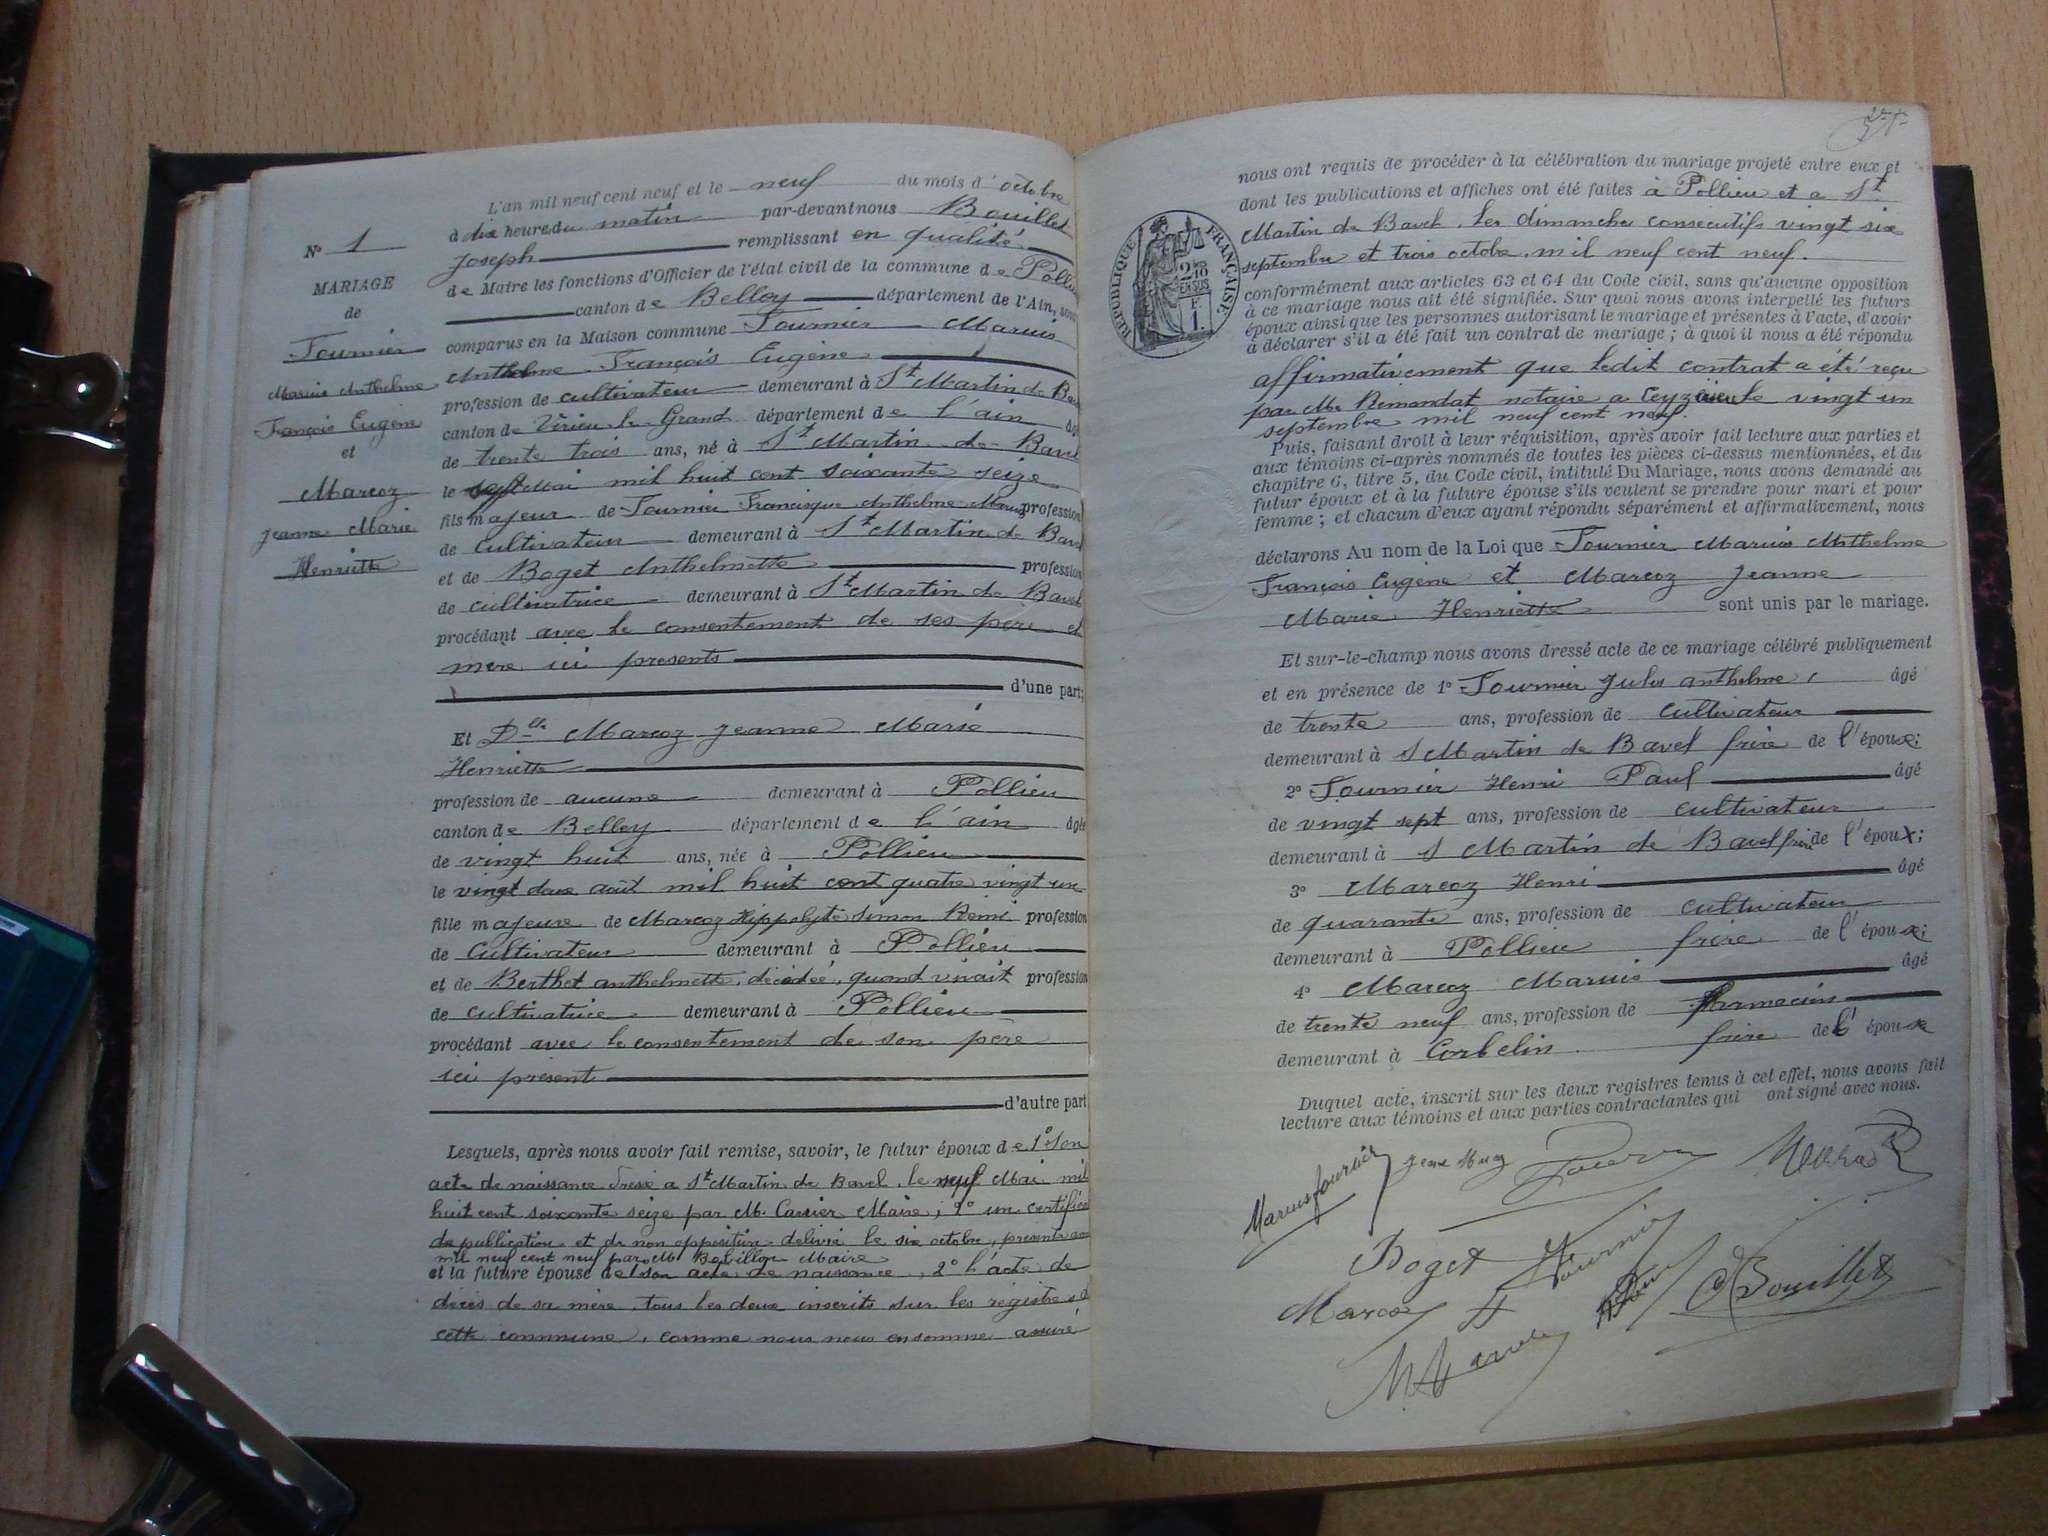 L'an mil neuf cent neuf et le neuf du mois d'octobre
à dix heures du matin par-devant nous Bouillet
Joseph remplissant en qualité
de Maire les fonctions d'Officier de l'état civil de la commune de Pollieu
canton de Belley département de l'Ain, sont
comparus en la Maison commune Fournier Marius
Anthelme François Eugène
profession de cultivateur demeurant à St Martin de Bavel
canton de Virieu le Grand département de l'ain âgé
de trente trois ans, né à St Martin de Bavel
le sept Mai mil huit cent soixante seize
fils majeur de Fournier Francisque Anthelme Marius profession
de cultivateur demeurant à St Martin de Bavel
et de Boget Anthelmette profession
de cultivatrice demeurant à St Martin de Bavel
procédant avec le consentement de ses père et
mère ici presents
d'une part;
Et Delle Marcoz Jeanne Marie
Henriette
profession de aucune demeurant à Pollieu
canton de Belley département de l'ain âgée
de vingt huit ans, née à Pollieu
le vingt deux août mil huit cent quatre vingt un
fille majeure de Marcoz Hippolyte Simon Rémi profession
de Cultivateur demeurant à Pollieu
et de Berthet anthelmette, décédée, quand vivait profession
de cultivatrice demeurant à Pollieu
procédant avec le consentement de son père
ici présent
d'autre part
Lesquels, après nous avoir fait remise, savoir, le futur époux de 1° son
acte de naissance dressé a St Martin de Bavel, le neuf Mai mil
huit cent soixante seize par M. Carrier Maire; 2° un certificat
de publication et de non opposition délivré le six octobre, présent an
mil neuf cent neuf par M Bobillon Maire
et la future épouse de son acte de naissance, 2° l'acte de
décès de sa mère, tous les deux inscrits sur les registres de
cette commune, comme nous nous en somme assuré
N° 1
MARIAGE
de
Fournier
Marius Anthelme
François Eugène
et
Marcoz
Jeanne Marie
Henriette
nous ont requis de procéder à la célébration du mariage projeté entre eux et
dont les publications et affiches ont été faites à Pollieu et a St
Martin de Bavel. les dimanches consecutifs vingt six
septembre et trois octobre. mil neuf cent neuf.
conformément aux articles 63 et 64 du Code civil, sans qu'aucune opposition
à ce mariage nous ait été signifiée. Sur quoi nous avons interpellé les futurs
époux ainsi que les personnes autorisant le mariage et présentes à l'acte, d'avoir
à déclarer s'il a été fait un contrat de mariage; à quoi il nous a été répondu
affirmativement que ledit contrat a été reçu
par Me Rimandat notaire a Ceyzérieu le vingt un
septembre mil neuf cent neuf
Puis, faisant droit à leur réquisition, après avoir fait lecture aux parties et
aux témoins ci-après nommés de toutes les pièces ci-dessus mentionnées, et du
chapitre 6, titre 5, du Code civil, intitulé Du Mariage, nous avons demandé au
futur époux et à la future épouse s'ils veulent se prendre pour mari et pour
femme; et chacun d'eux ayant répondu séparément et affirmativement, nous
déclarons Au nom de la Loi que Fournier Marius Anthelme
François Eugène et Marcoz Jeanne
Marie Henriette sont unis par le mariage.
Et sur-le-champ nous avons dressé acte de ce mariage célébré publiquement
et en présence de 1° Fournier Jules anthelme, âgé
de trente ans, profession de cultivateur
demeurant à S Martin de Bavel frère de l'époux;
2° Fournier Henri Paul âgé
de vingt sept ans, profession de cultivateur
demeurant à S Martin de Bavel frère de l'époux;
3° Marcoz Henri âgé
de quarante ans, profession de cultivateur
demeurant à Pollieu frère de l'épouse;
4° Marcoz Marius âgé
de trente neuf ans, profession de Pharmacien
demeurant à Corbelin frère de l'épouse
Duquel acte, inscrit sur les deux registres tenus à cet effet, nous avons fait
lecture aux témoins et aux parties contractantes qui ont signé avec nous.
Marius Fournier
Boget Fournier
Marcoz H
Bouillet
RÉPUBLIQUE FRANÇAISE
2/10 EN SUS
F.
1.